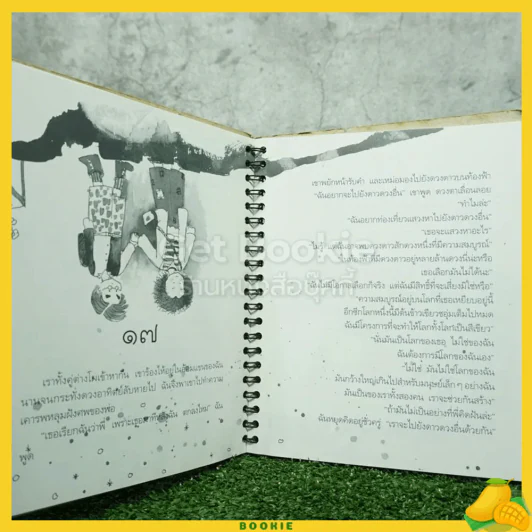 ๑๗
เขาทั้งคู่ต่างโผเข้าหากัน เขาร้องไห้อยู่ในอ้อมแขนของฉัน
นานจนกระทั่งดวงอาทิตย์ลับหายไป ฉันจึงพาเขาไปทำความ
เคารพหลุมฝังศพของพ่อ
"เธอเรียกฉันว่าพี่ เพราะเธอ ฉัน ตกลงไหม" ฉัน
พูด
เขาพยักหน้ารับคำ และเหม่อมองไปยังดวงดาวบนท้องฟ้า
"ฉันอยากจะไปยังดาวดวงอื่น" เขาพูด ดวงตาเลื่อนลอย
"ทำไมล่ะ"
"ฉันอยากท่องเที่ยวแสวงหาไปยังดาวดวงอื่น"
"เธอจะแสวงหาอะไร"
ดวงดาวสักดวงหนึ่งที่มีความสมบูรณ์"
มีดวงดาวอยู่หลายล้านดวงนี่น่ะหรือ
เธอเลือกมันไม่ได้นะ"
ฉันไม่มีโอกาสเลือกก็จริง แต่ฉันมีสิทธิ์ที่จะเสี่ยงมิใช่หรือ"
"ความสมบูรณ์อยู่บนโลกที่เธอเหยียบอยู่นี้
อีกซีกโลกหนึ่งนี้มีต้นข้าวเขียวชอุ่มเต็มไปหมด
ฉันมีโครงการที่จะทำให้โลกทั้งโลกเป็นสีเขียว"
"ฉันมันเป็นโลกของเธอ ไม่ใช่ของฉัน
ฉันต้องการมีโลกของฉันเอง"
"ไม่ใช่ มันไม่ใช่โลกของฉัน
มันกว้างใหญ่เกินไปสำหรับมนุษย์เล็กๆ อย่างฉัน
มันเป็นของเราทั้งสองคน เราจะช่วยกันสร้าง
"ถ้ามันไม่เป็นอย่างที่พี่คิดฝันล่ะ"
ฉันหยุดคิดอยู่ชั่วครู่ "เราจะไปยังดาวดวงอื่นด้วยกัน"
Net Booki
ร้านหนังสือบุ๊กกี้
BOOKIE
BOOKIE